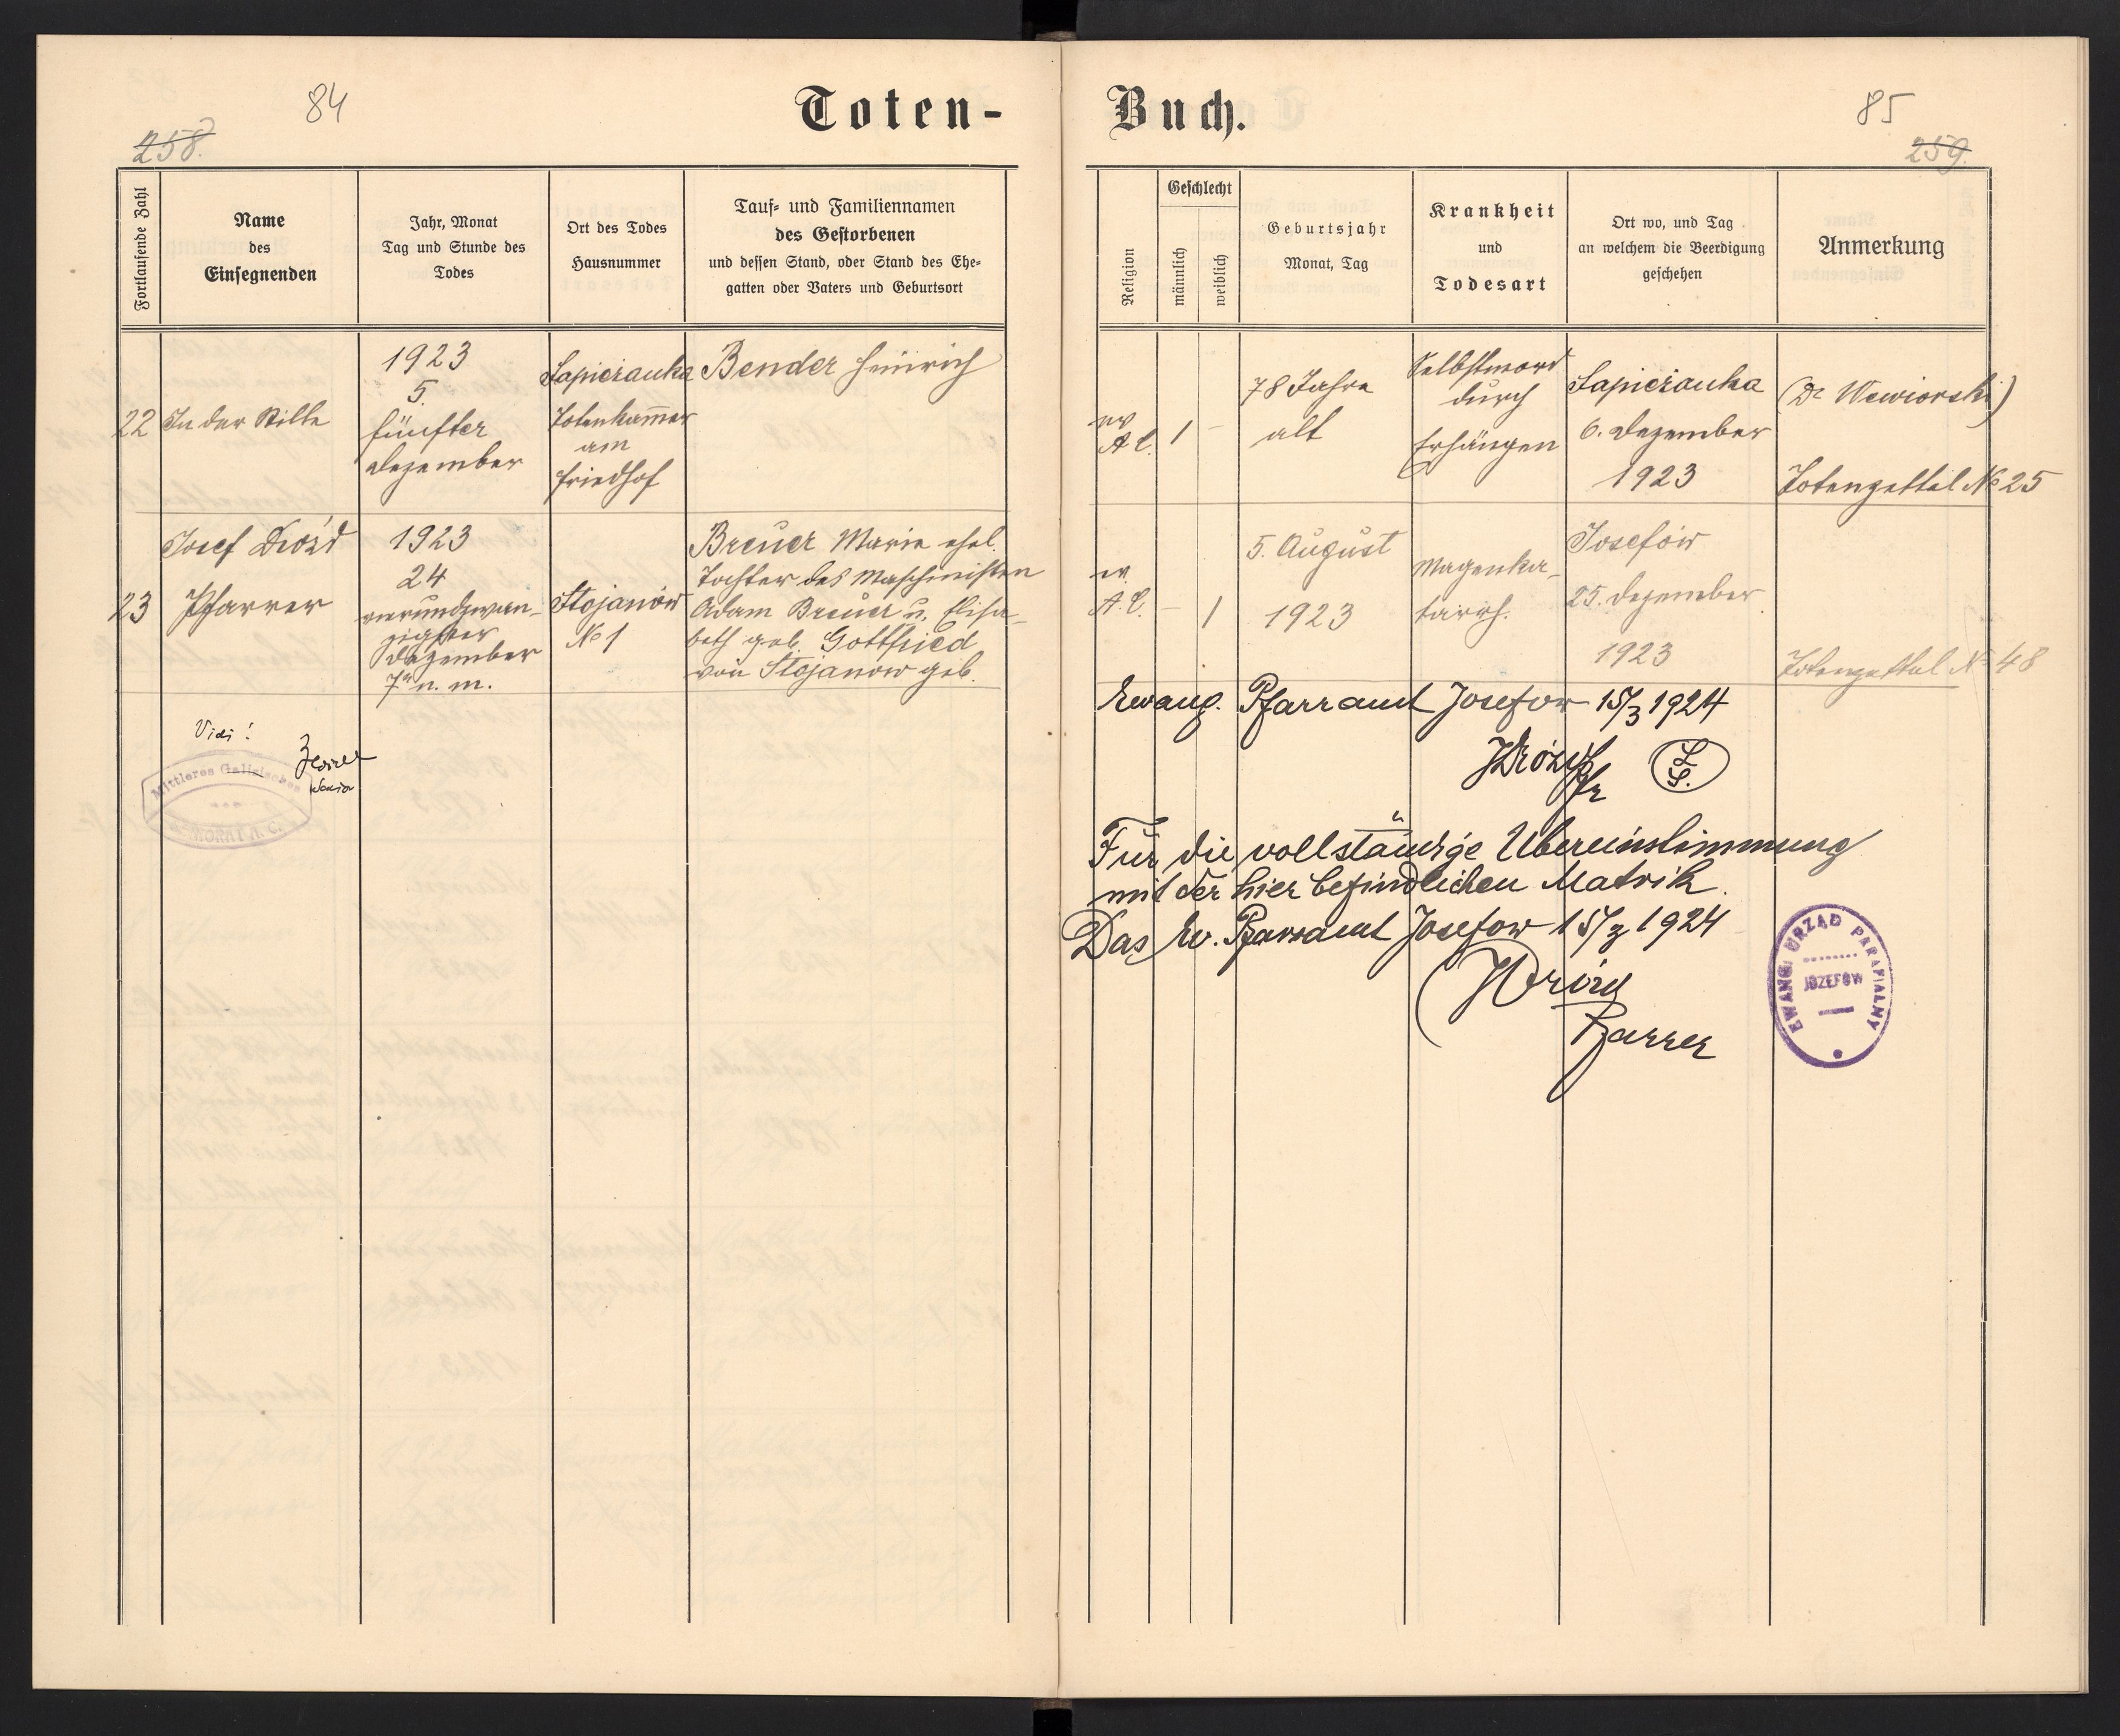 84
258.
Toten-
Fortlaufende Zahl
Name
des
Einsegnenden
Jahr, Monat
Tag und Stunde des
Todes
Ort des Todes
Hausnummer
Tauf- und Familiennamen
des Gestorbenen
und dessen Stand, oder Stand des Ehe-
gatten oder Vaters und Geburtsort
22
In der Stille
1923
5.
fünfter
Dezember
Sapieżanka
Totenkam̄er
am
Friedhof
Bender Heinrich
23
Josef Drozd
Pfarrer
1923
24
vierundzwan-
zigster
Dezember
7 n. m.
Stojanów
No 1
Breuer Maria ehel.
Tochter des Maschinisten
Adam Breuer u. Elisa-
beth geb. Gottfried
von Stojanow geb.
Vidi!
Mittleres Galizisches
Buch.
85
259.
Religion
Geschlecht
männlich
weiblich
Geburtsjahr
Monat, Tag
Krankheit
und
Todesart
Ort wo, und Tag
an welchem die Beerdigung
geschehen
Anmerkung
ev
A. C.
1
–
78 Jahre
alt
Selbstmord
durch
Erhängen
Sapieżanka
6. Dezember
1923
(Dr Wewiorski)
Totenzettel No 25
ev.
A. C.
–
1
5. August
1923
Magenka-
tarrh.
Josefów
25. Dezember
1923
Totenzettel No 48
Ewang. Pfarramt Josefow 15/3 1924
JDrozd
Pfr
L.
S.
Für die vollständige Übereinstimmung
mit der hier befindlichen Matrik.
Das Ev. Pfarramt Josefow 15/3 1924
JDrozd
Pfarrer
EWANG. URZĄD PARAFIALNY
JÓZEFÓW